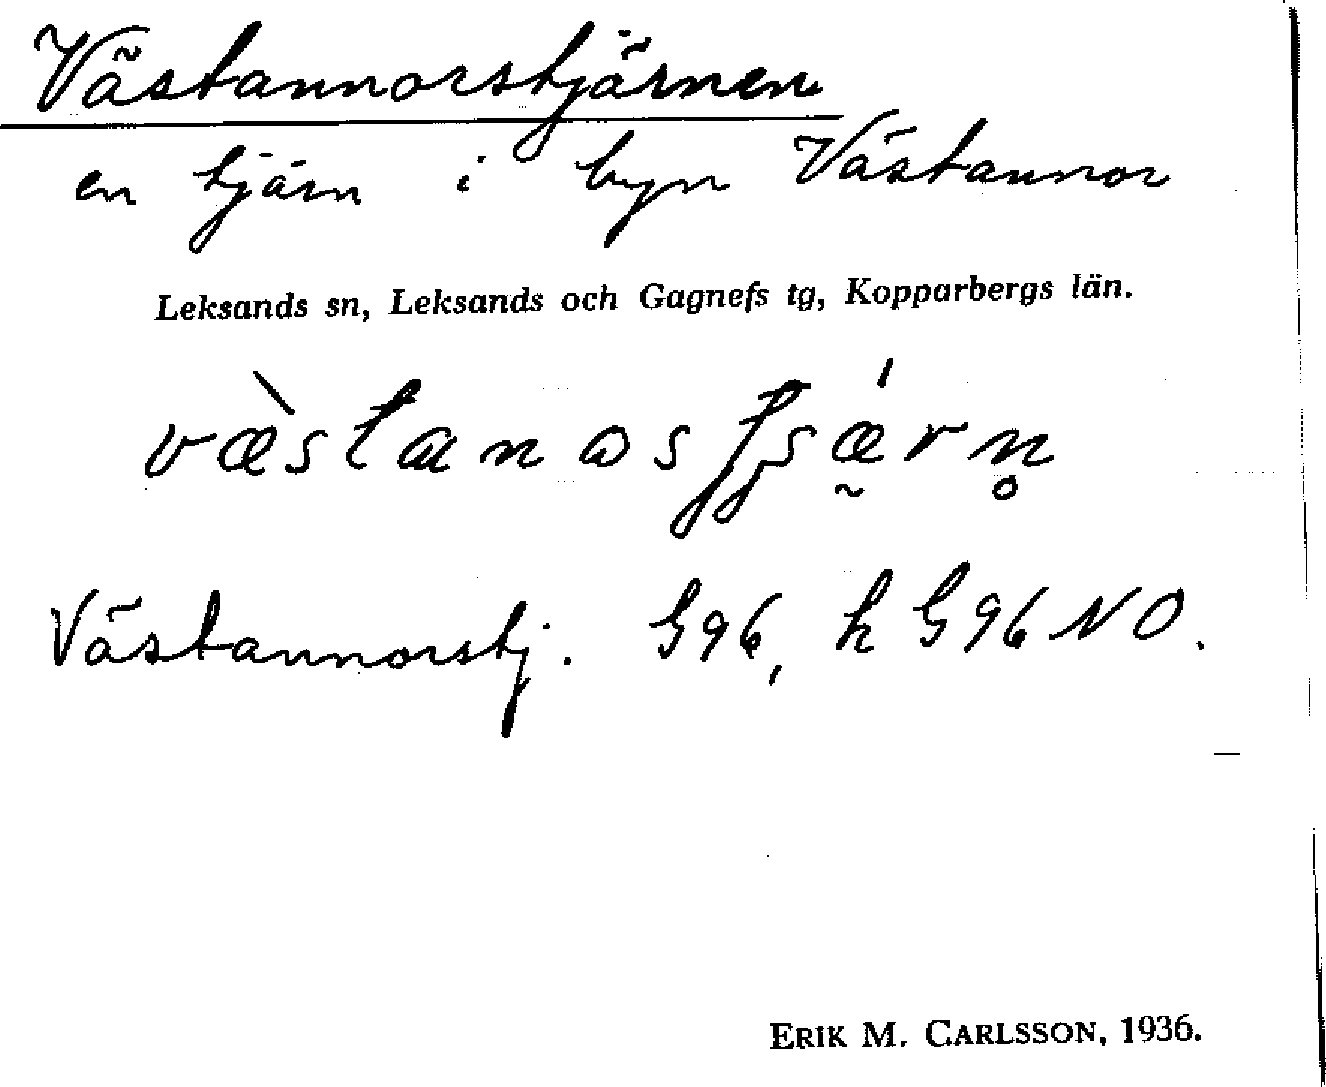 Västannorstjärnen
en tjärn i byn Västannor
Leksands sn, Leksands och Gagnefs tg, Kopparbergs län.
Västannorstj. G96, k G96 NO.
ERIK M. CARLSSON, 1936.